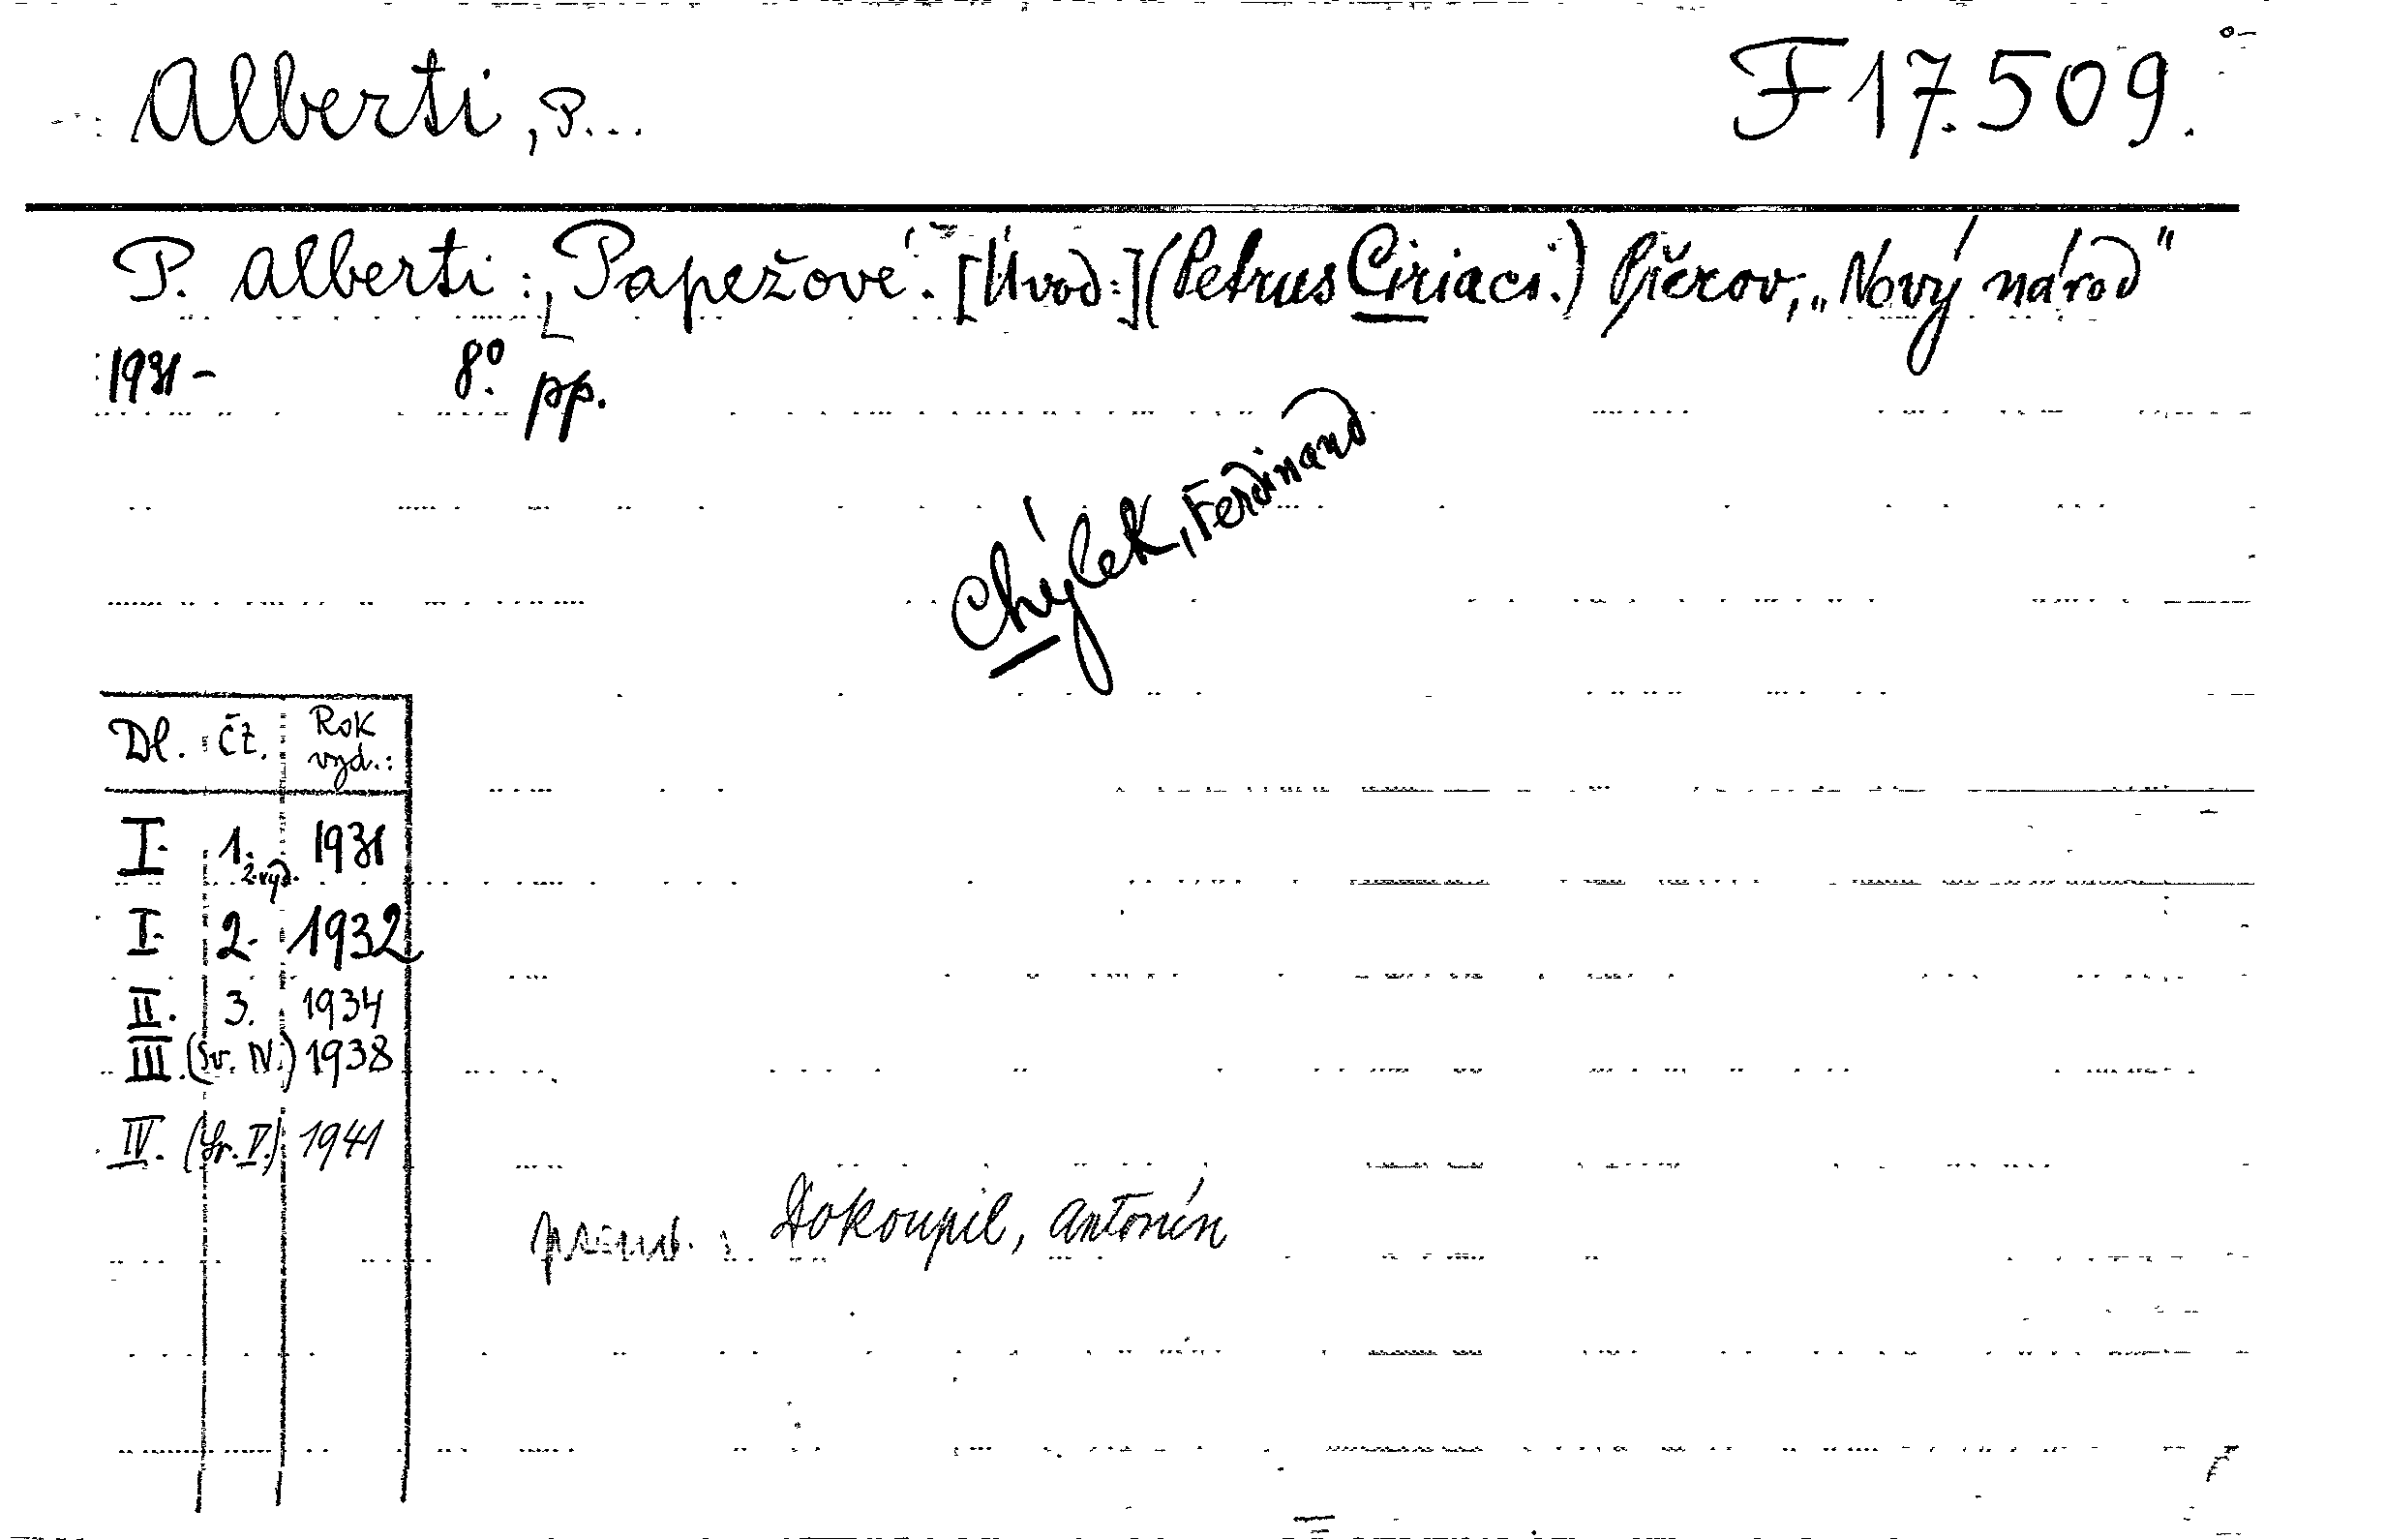 Alberti, P...
F 17.509.
P. Alberti: Papežové. [Úvod:] (Petrus Ciriaci.) Přerov, „Nový národ"
1931- 8° pp.
Chýlek, Ferdinand
Dl. Čž. Rok vyd.:
I. 1. 1931
2. vyd.
I. 2. 1932
II. 3. 1934
III. (Sv. IV.) 1938
IV. (Sv. V.) 1941
Dokoupil, Antonín